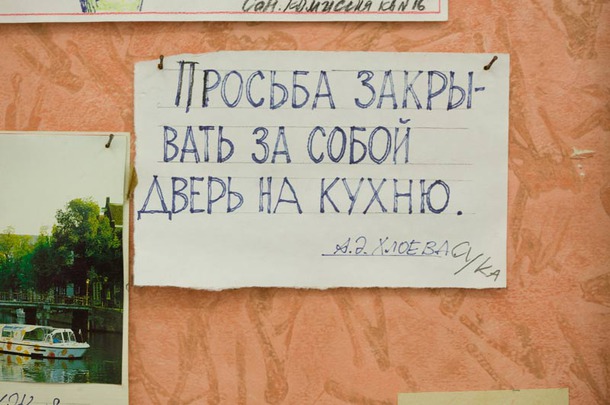 Сан. комиссия кв №16
ПРОСЬБА ЗАКРЫ-
ВАТЬ ЗА СОБОЙ
ДВЕРЬ НА КУХНЮ.
А.Э. ХЛОЕВА сука